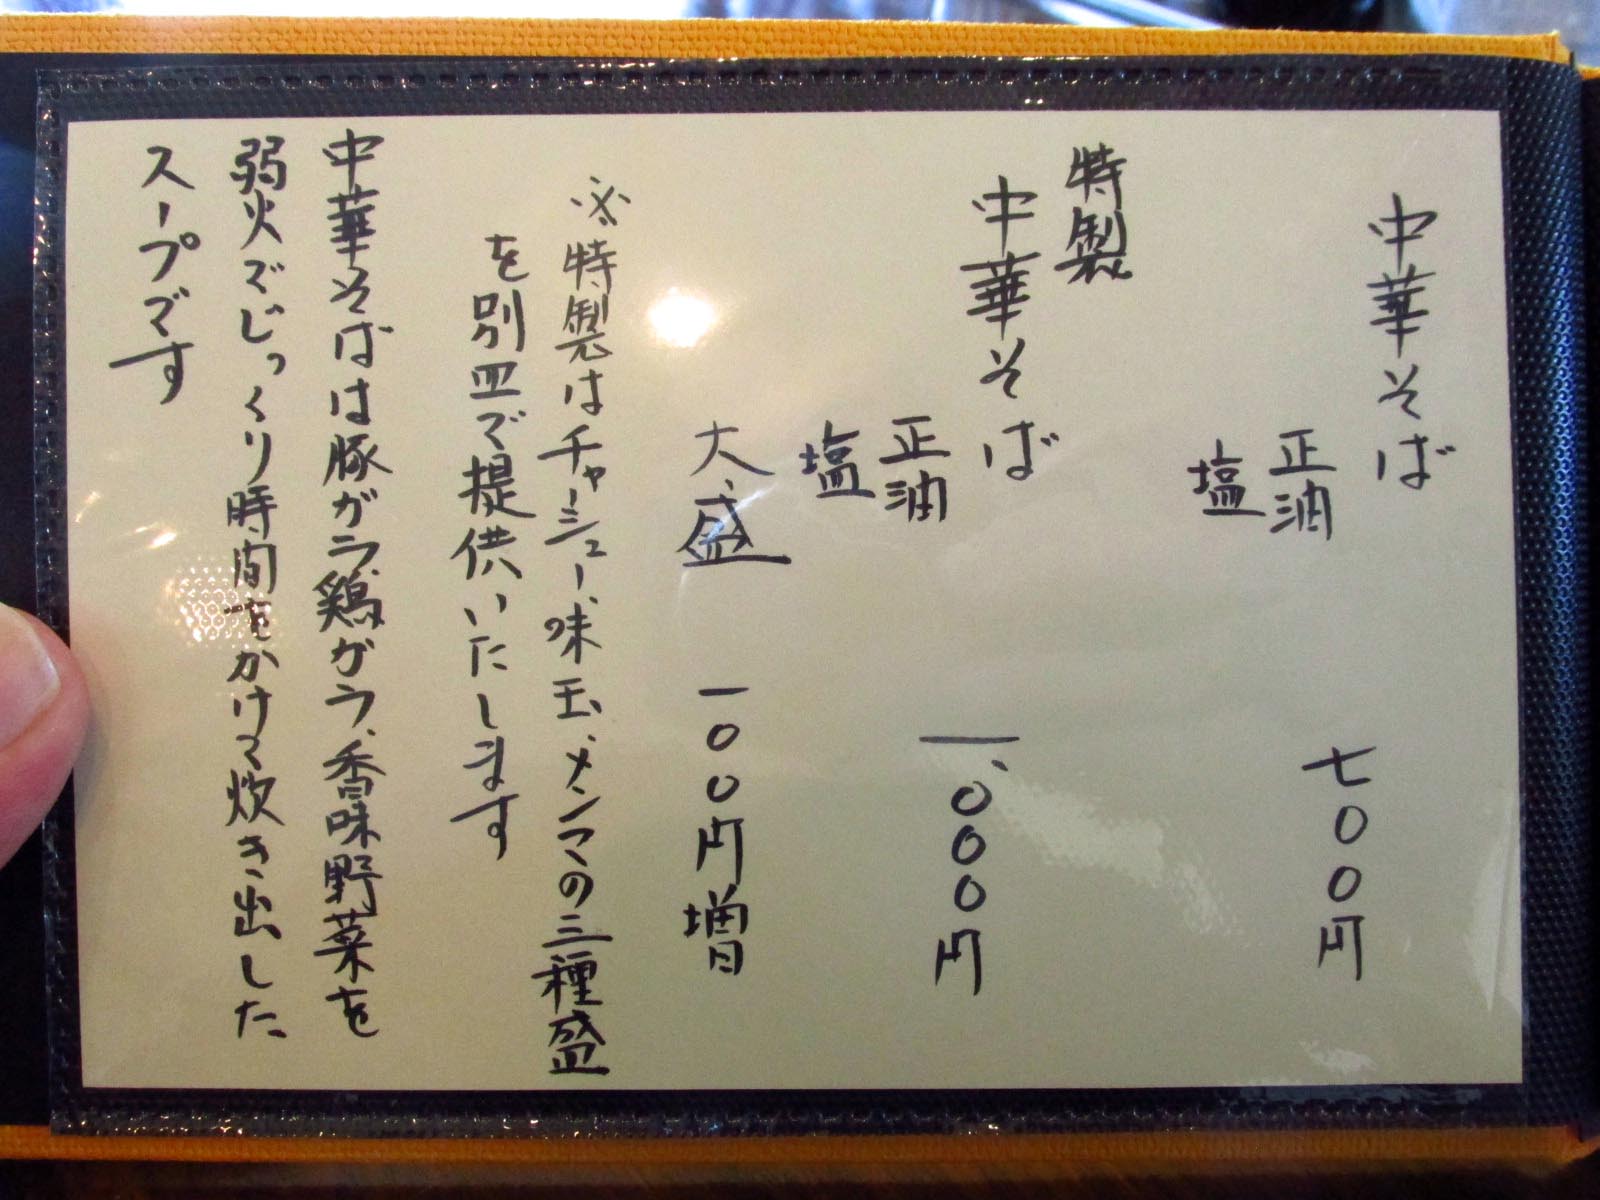 中華そば
正油
塩
七〇〇円
特製
中華そば
正油
塩
一、〇〇〇円
大盛 一〇〇円増
※特製はチャーシュー、味玉、メンマの三種盛
を別皿で提供いたします
中華そばは豚ガラ、鶏ガラ、香味野菜を
弱火でじっくり時間をかけて炊き出した
スープです